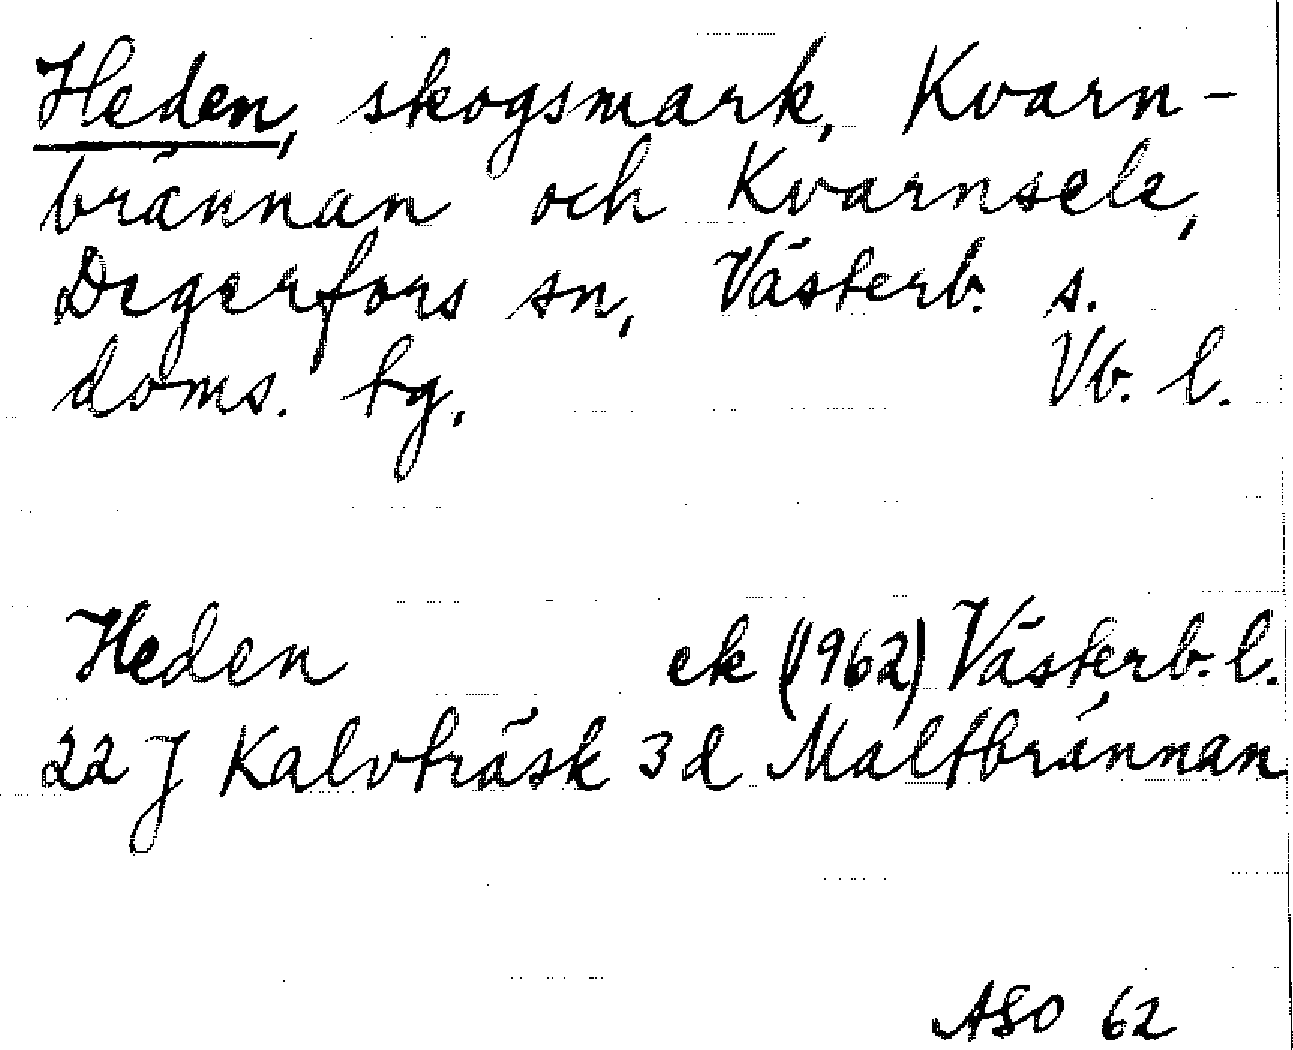 Heden, skogsmark, Kvarn-
brännan och Kvarnsele,
Degerfors sn, Västerb. s.
doms. tg, Vb. l.
Heden ek (1962) Västerb. l.
22 J Kalvträsk 3 d Maltbrännan
ASO 62